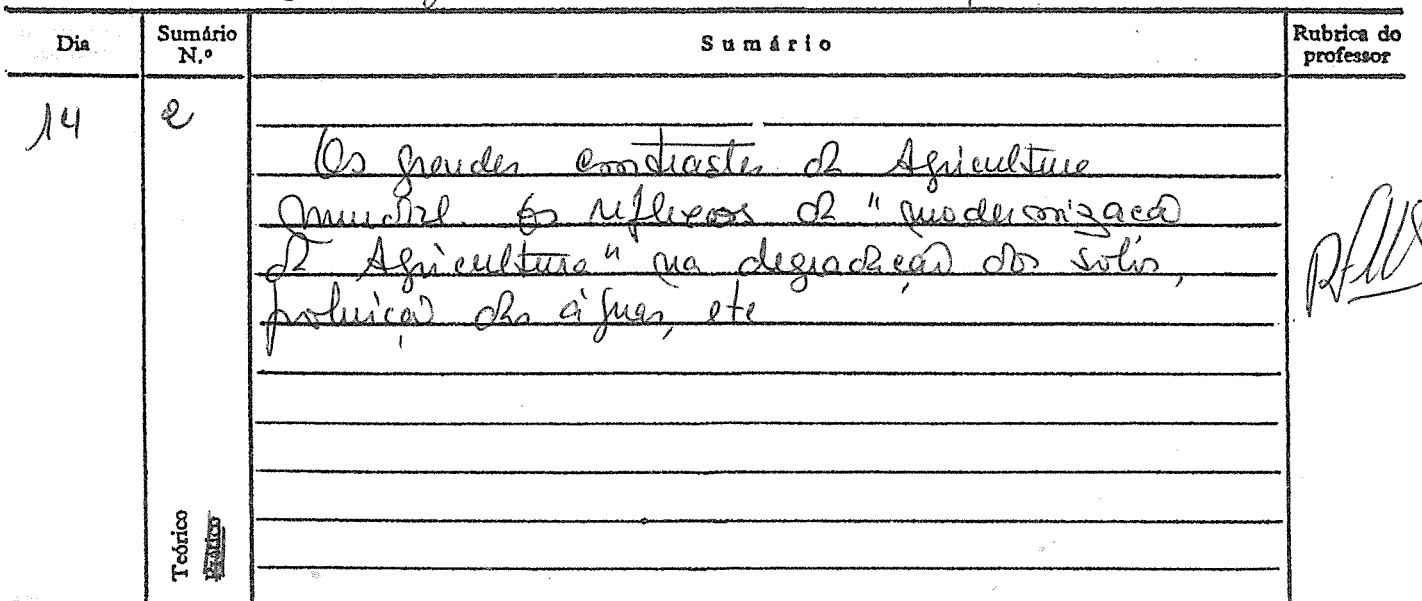 Dia
Sumário N.º
Sumário
Rubrica do professor
14
2
Os grandes contrastes da Agricultura
mundial. Os reflexos da "modernização
da Agricultura" na degradação dos solos,
poluição das águas, etc
Teórico
Prático